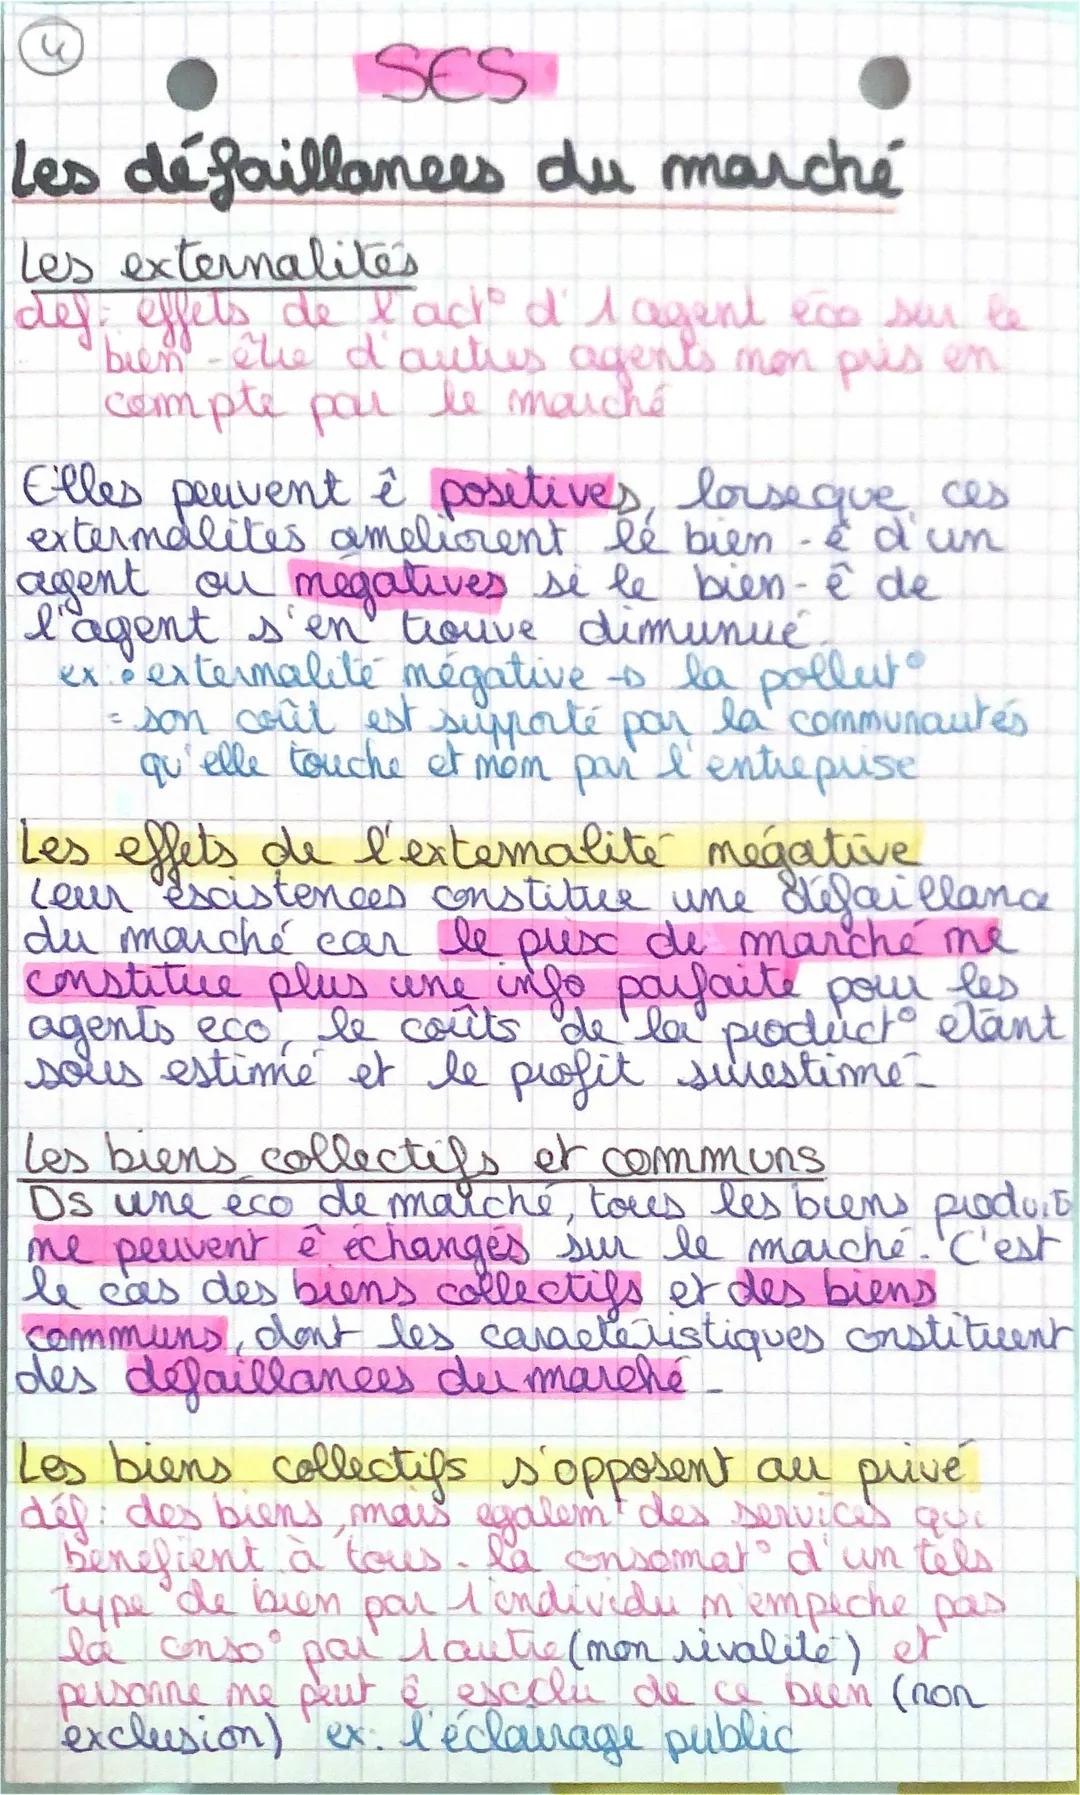 4
SES
Les défaillances du marché
Les externalités
def: effets de l'act° d'1 agent éco sur le
bien-être d'autres agents non pris en
compte par le marché
Elles peuvent ê positives, lorseque ces
externalités ameliorent le bien-ê d'un
agent ou négatives si le bien-ê de
l'agent s'en trouve dimunué
ex: externalité négative → la pollut°
= son coût est supporté par la communautés
qu'elle touche et non par l'entreprise
Les effets de l'externalité négative
Leur escistences constitue une défaillance
du marché car le prix de marché ne
constitue plus une info parfaite pour les
agents eco, le coûts de la product° étant
sous estimé et le profit surestimé-
Les biens collectifs et communs
Ds une éco de marché, tous les biens produits
ne peuvent ê échangés sur le marché. C'est
le cas des biens collectifs et des biens
communs, dont les caractéristiques constituent
des défaillances du marché-
Les biens collectifs s'opposent au privé
déf: des biens, mais egalemt des services qui
benefient à tous. la consomat° d'un tels
type de bien par 1 individu n'empeche pas
la conso° par 1 autre (non rivalité) et
personne ne peut ê esclu de ce bien (non
exclusion) ex: l'éclairage public